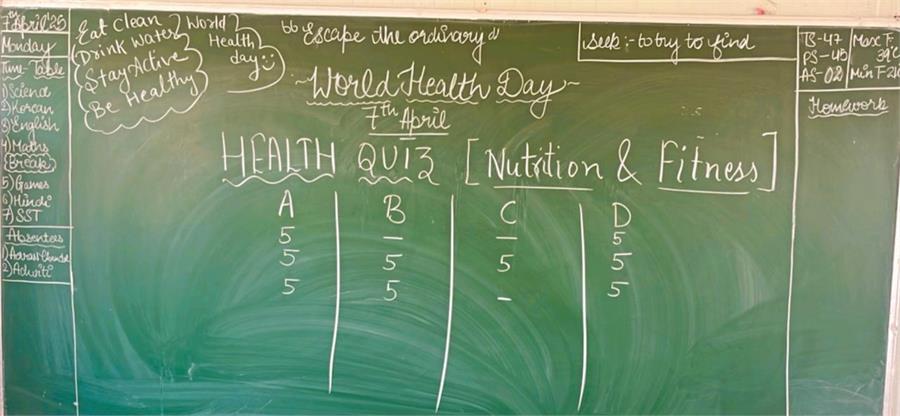 7th April'25
Monday
Time-Table
1) Science
2) Korean
3) English
4) Maths
(Break)
5) Games
6) Hindi
7) SST
Absentees
2) Adwiti
Eat Clean
Drink Water
Stay Active
Be Healthy
World
Health
day
"Escape the ordinary"
~World Health Day~
7th April
HEALTH QUIZ [Nutrition & Fitness]
A B C D
5 – – 5
5 5 5 5
5 5 – 5
Seek :- to try to find
TS-47
PS-45
AS-02
Max T:
39°C
Min T 21
Homework